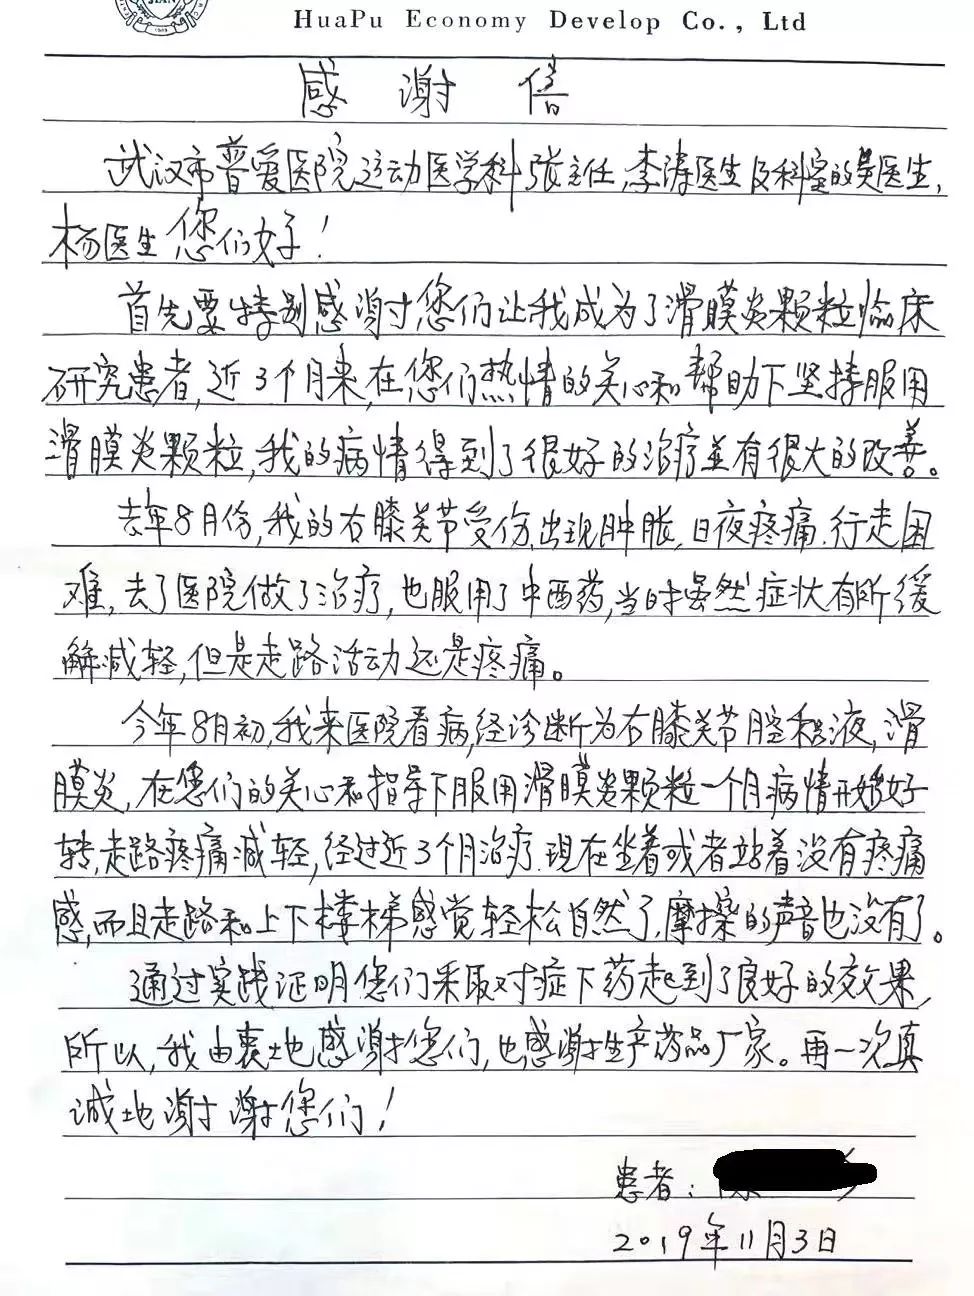 HuaPu Economy Develop Co., Ltd
感谢信
武汉市普爱医院运动医学科张主任,李涛医生及科室的吴医生,
杨医生您们好!
首先要特别感谢您们让我成为了滑膜炎颗粒临床
研究患者,近3个月来,在您们热情的关心和帮助下坚持服用
滑膜炎颗粒,我的病情得到了很好的治疗並有很大的改善。
去年8月份,我的右膝关节受伤,出现肿胀,日夜疼痛,行走困
难,去了医院做了治疗,也服用了中西药,当时虽然症状有所缓
解减轻,但是走路活动还是疼痛。
今年8月初,我来医院看病,经诊断为右膝关节腔积液,滑
膜炎,在您们的关心和指导下服用滑膜炎颗粒一个月病情开始好
转,走路疼痛减轻,经过近3个月治疗.现在坐着或者站着没有疼痛
感,而且走路和上下楼梯感觉轻松自然了,摩擦的声音也没有了。
通过实践证明您们采取对症下药起到了良好的效果,
所以,我由衷地感谢您们,也感谢生产药品厂家。再一次真
诚地谢谢您们!
患者:
2019年11月3日